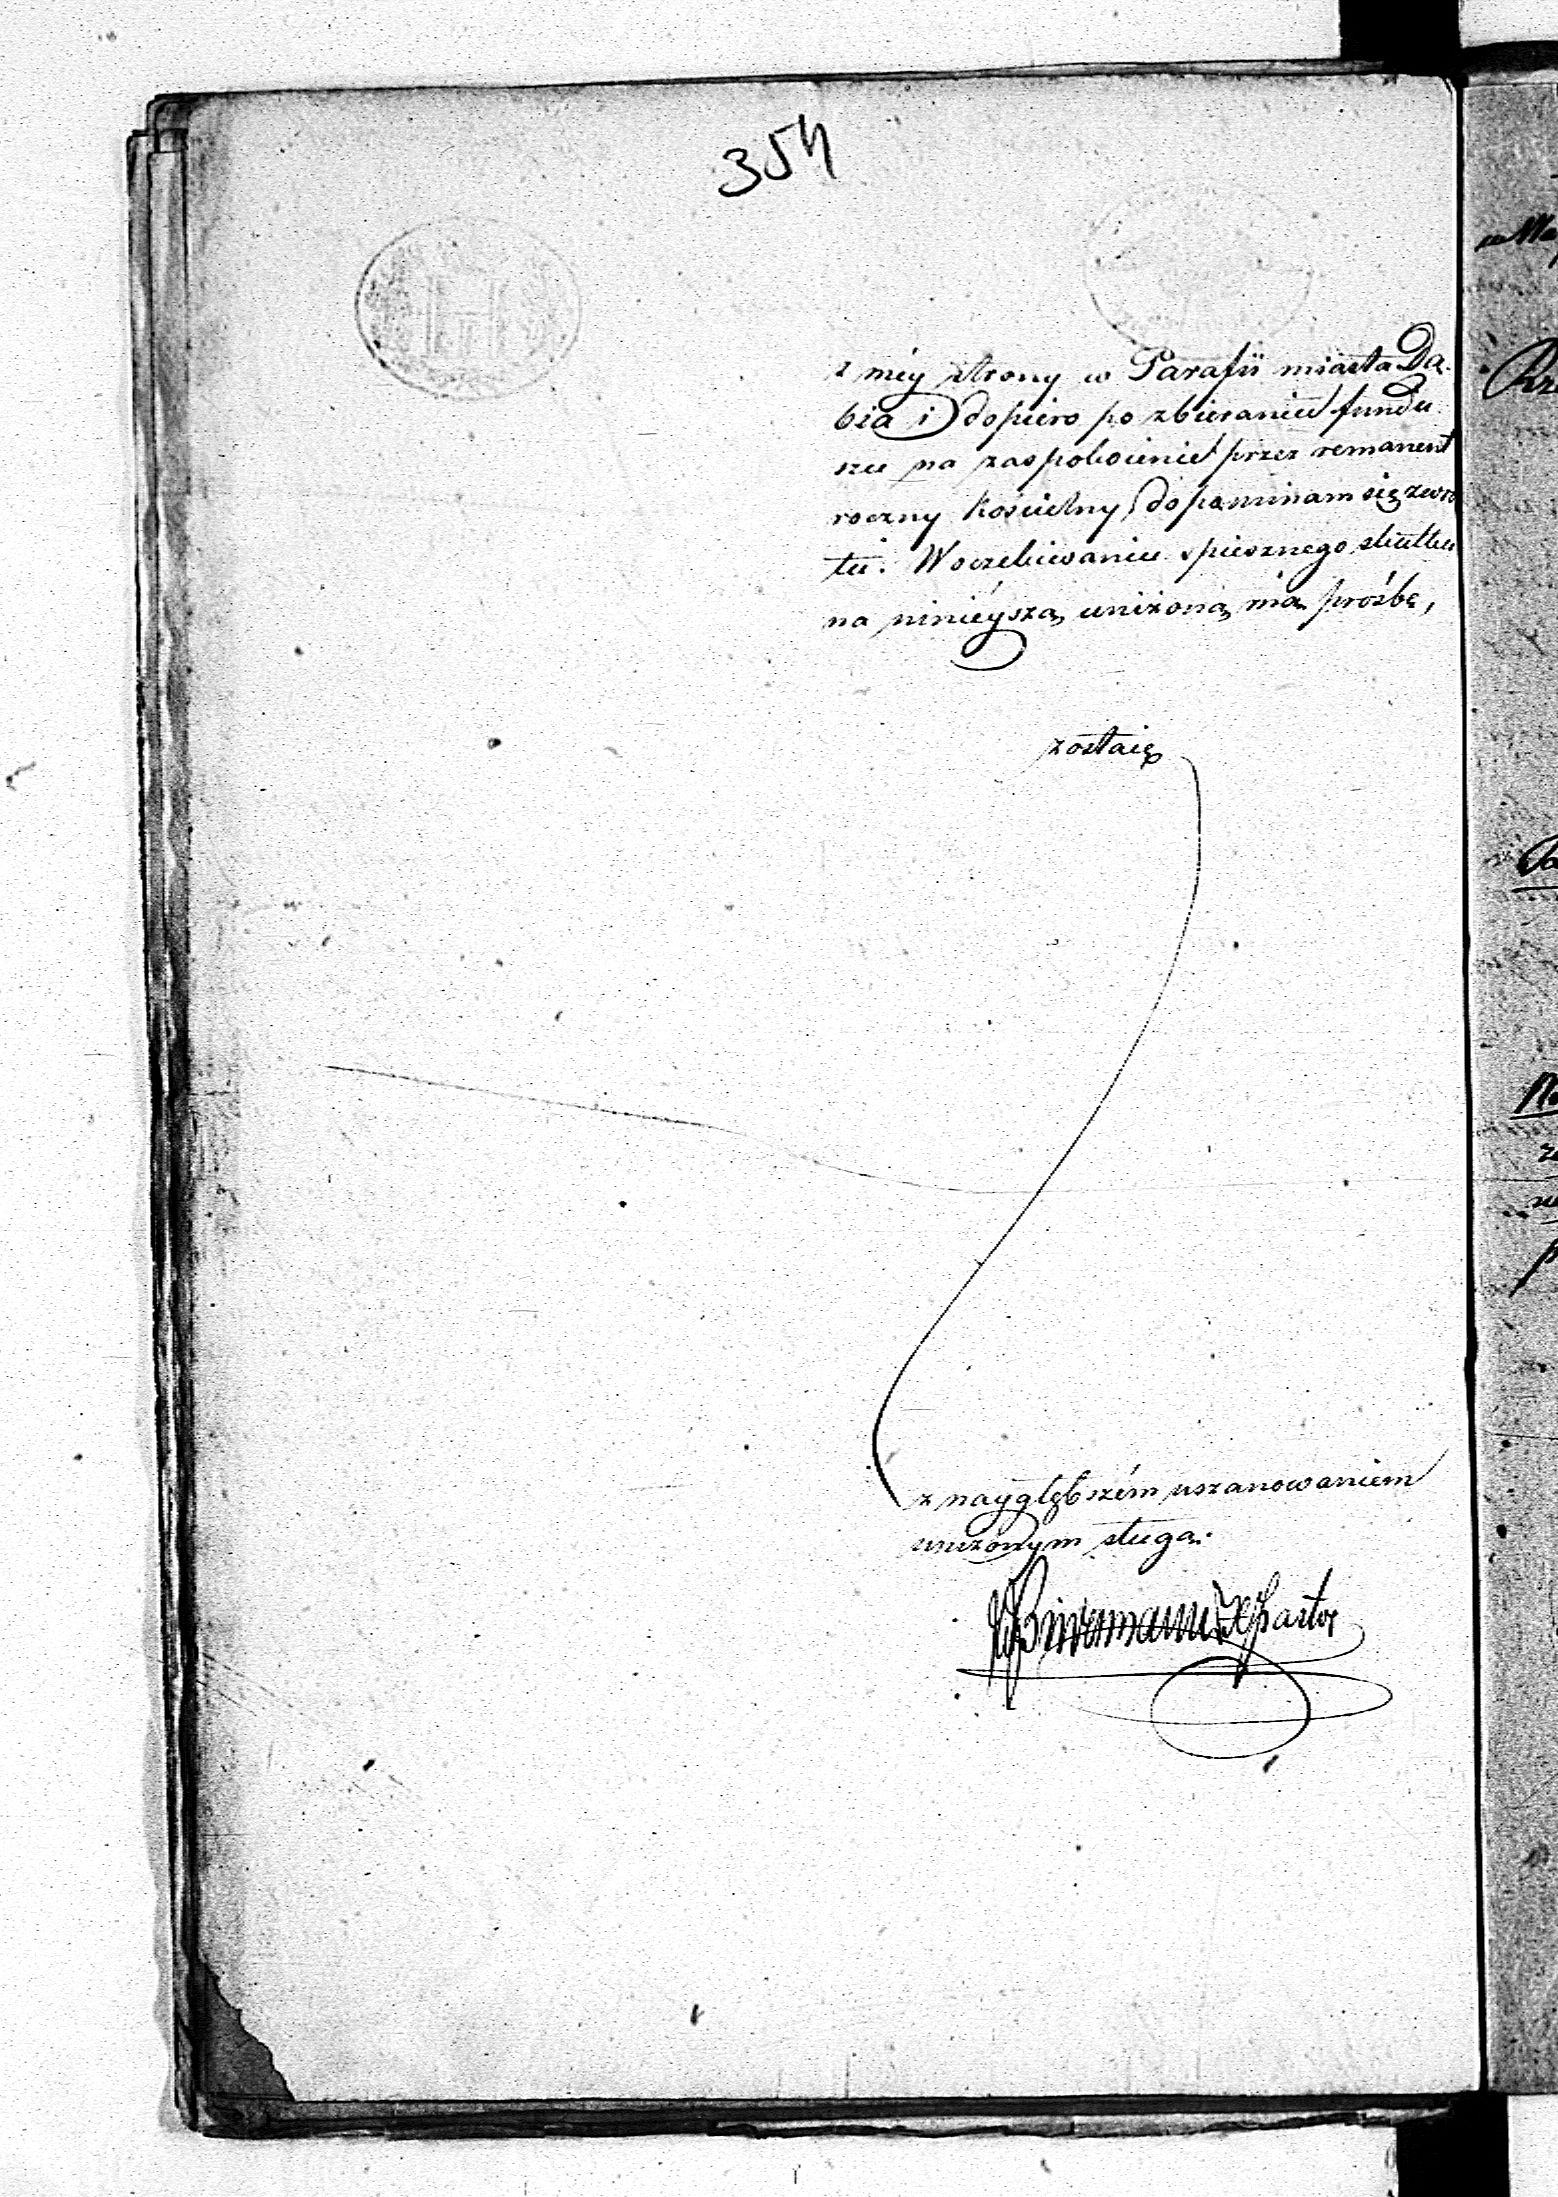 354
z méy strony w Parafii miasta Dą-
bia i dopiero po zbieraniu fundu
szu na zaspokoienie przez remanent
roczny kościelny dopominam się zwro
tu. W oczekiwaniu spiesznego skutku
na ninieyszą uniżoną mą prośbę,
zostaię
z naygłębszém uszanowaniem
uniżonym sługą.
Biermann Pastor